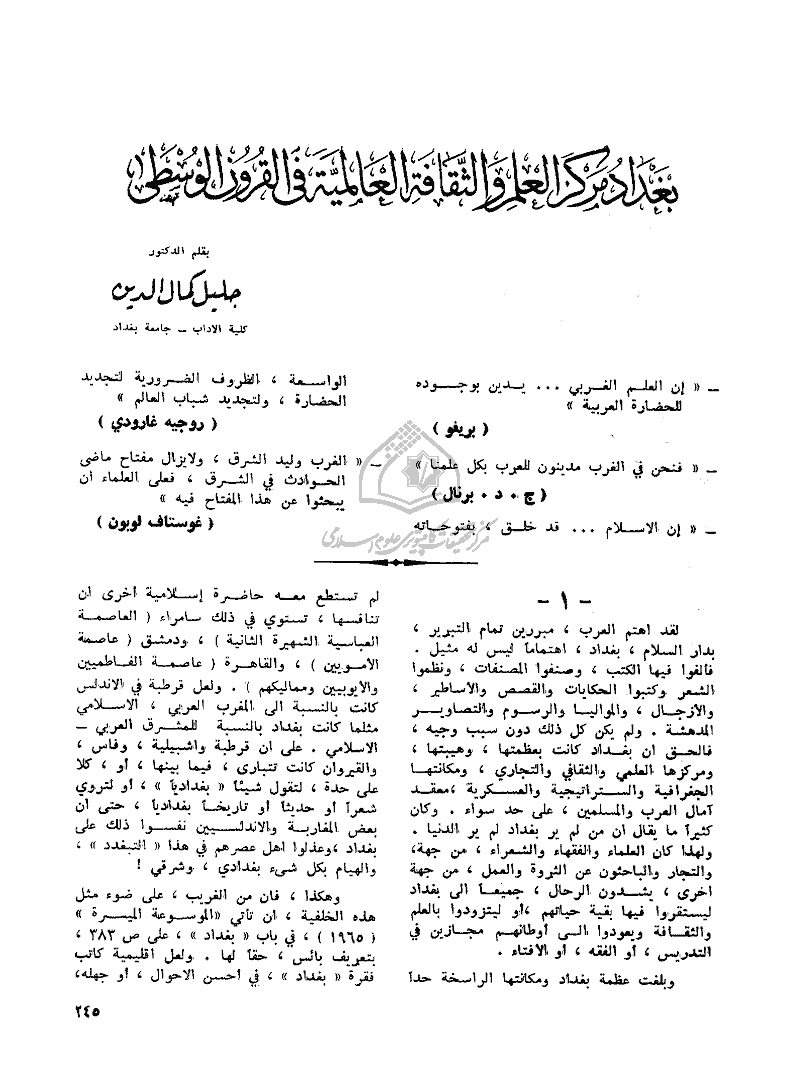 بغداد مركز العلم والثقافة العالمية في القرون الوسطى
بقلم الدكتور
جليل كمال الدين
كلية الاداب ـ جامعة بغداد
ـ « إن العلـم الغـربي ... يـدين بوجـوده
للحضارة العربية »
( بريفو )
ـ « فنحن في الغرب مدينون للعرب بكل علمنا »
( ج . د . برنال )
ـ « إن الاسـلام ... قد خلق ، بفتوحاته
الواسـعة ، الظروف الضـرورية لتجديد
الحضارة ، ولتجديد شباب العالم »
( روجيه غارودي )
ـ « الغرب وليد الشرق ، ولايزال مفتاح ماضي
الحـوادث في الشـرق ، فعلى العلماء ان
يبحثوا عن هذا المفتاح فيه »
( غوستاف لوبون )
مركز تحقيقات كامپيوترى علوم اسلامى
ـ ١ ـ
لقد اهتم العرب ، مبررين تمام التبرير ،
بدار السلام ، بغداد ، اهتماماً ليس له مثيل .
فألفوا فيها الكتب ، وصنفوا المصنفات ، ونظموا
الشعر وكتبوا الحكايات والقصص والأساطير ،
والأزجـال ، والمواليـا والرسـوم والتصاويـر
المدهشة . ولم يكن كل ذلك دون سبب وجيه ،
فالحق ان بغـداد كانت بعظمتها ، وهيبتها ،
ومركزها العلمي والثقافي والتجاري ، ومكانتهـا
الجغرافية والسـتراتيجية والعسكرية ،معقـد
آمال العرب والمسلمين ، على حد سواء . وكان
كثيراً ما يقال ان من لم ير بغداد لم ير الدنيا .
ولهذا كان العلماء والفقهاء والشعراء ، من جهة،
والتجار والباحثون عن الثروة والعمل ، من جهة
اخرى ، يشـدون الرحال ، جميعـاً الى بغداد
ليستقروا فيها بقية حياتهم ،أو ليتزودوا بالعلم
والثقـافة ويعودوا الـى أوطانهـم مجازين في
التدريس ، أو الفقه ، أو الافتاء .
وبلغت عظمة بغداد ومكانتها الراسخة حداً
لم تستطع معـه حاضـرة إسـلامية اخرى ان
تنافسها ، تستوي في ذلك سامراء ( العاصمـة
العباسية الشهيرة الثانية ) ، ودمشق ( عاصمة
الأمـويين ) ، والقاهـرة ( عاصمـة الفـاطميين
والايوبيين ومماليكهم ) . ولعل قرطبة في الاندلس
كانت بالنسبة الى المغرب العربي ، الاسـلامي
مثلما كانت بغداد بالنسبة للمشـرق العربي ـ
الاسلامي . على ان قرطبة واشبيلية ، وفاس ،
والقيروان كانت تتبارى ، فيما بينها ، أو ، كلا
على حدة ، لتقول شيئاً « بغدادياً » ، أو لتروي
شعراً أو حديثاً أو تاريخـاً بغدادياً ، حتى ان
بعض المغاربـة والاندلسـيين نفسـوا ذلك على
بغداد ،وعذلوا اهل عصرهم في هذا « التبغدد » ،
والهيام بكل شيء بغدادي ، وشرقي !
وهكذا ، فان من الغريب ، على ضوء مثل
هذه الخلفية ، ان تأتي «الموسـوعة الميسرة »
( ١٩٦٥ ) ، في باب « بغداد » ، على ص ٣٨٣ ،
بتعريف بائس ، حقاً لها . ولعل اقليمية كاتب
فقرة « بغداد » ، في احسن الاحوال ، أو جهله،
٢٤٥